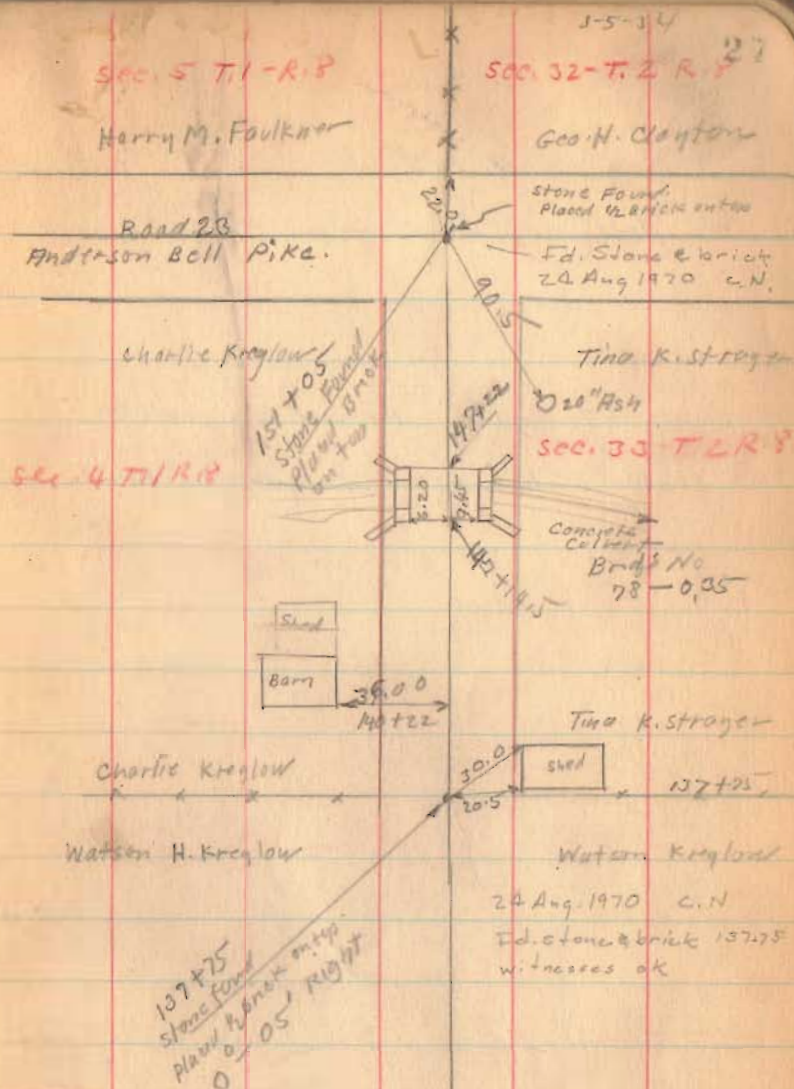 3-5-34
27
Sec. 5 T.1-R.8
Sec. 32-T.2 R.8
Harry M. Faulkner
Geo. H. Clayton
22.0
Stone Found.
Placed 1/2 Brick on top
Road 23
Anderson Bell Pike.
Fd. Stone & brick
24 Aug 1970 C.N.
90.5
Charlie Kreglow
Tina K. Strayer
151+05
Stone Found
Placed Brick
on top
20" Ash
147+22
Sec. 4 T.1 R.8
Sec. 33-T.2 R 8
Concrete
Culvert
Bridg No
78-0.35
Shed
Barn
36.00
140+22
Tina K. Strayer
Charlie Kreglow
30.0
Shed
20.5
137+75
Watson H. Kreglow
Watson Kreglow
24 Aug. 1970 C.N
Fd. stone & brick 137+75
witnesses ok
137+75
Stone found
placed 1/2 brick on top
05' Right